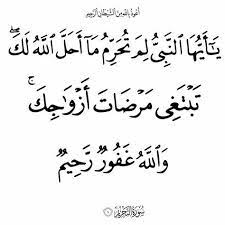 أعوذ بالله من الشيطان الرجيم
يَـٰٓأَيُّهَا ٱلنَّبِىُّ لِمَ تُحَرِّمُ مَآ أَحَلَّ ٱللَّهُ لَكَ ۖ
تَبْتَغِى مَرْضَاتَ أَزْوَٰجِكَ ۚ
وَٱللَّهُ غَفُورٌ رَّحِيمٌ
سورة التحريم ١